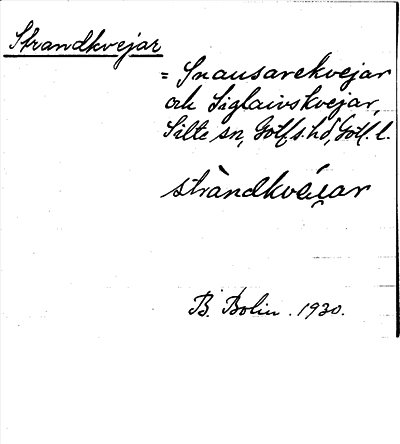 Strandkvejar
= Snausarekvejar
och Siglaivskvejar,
Silte sn, Gotl. s. hd, Gotl. l.
stràndkvéi̯ar
B. Bolin. 1930.